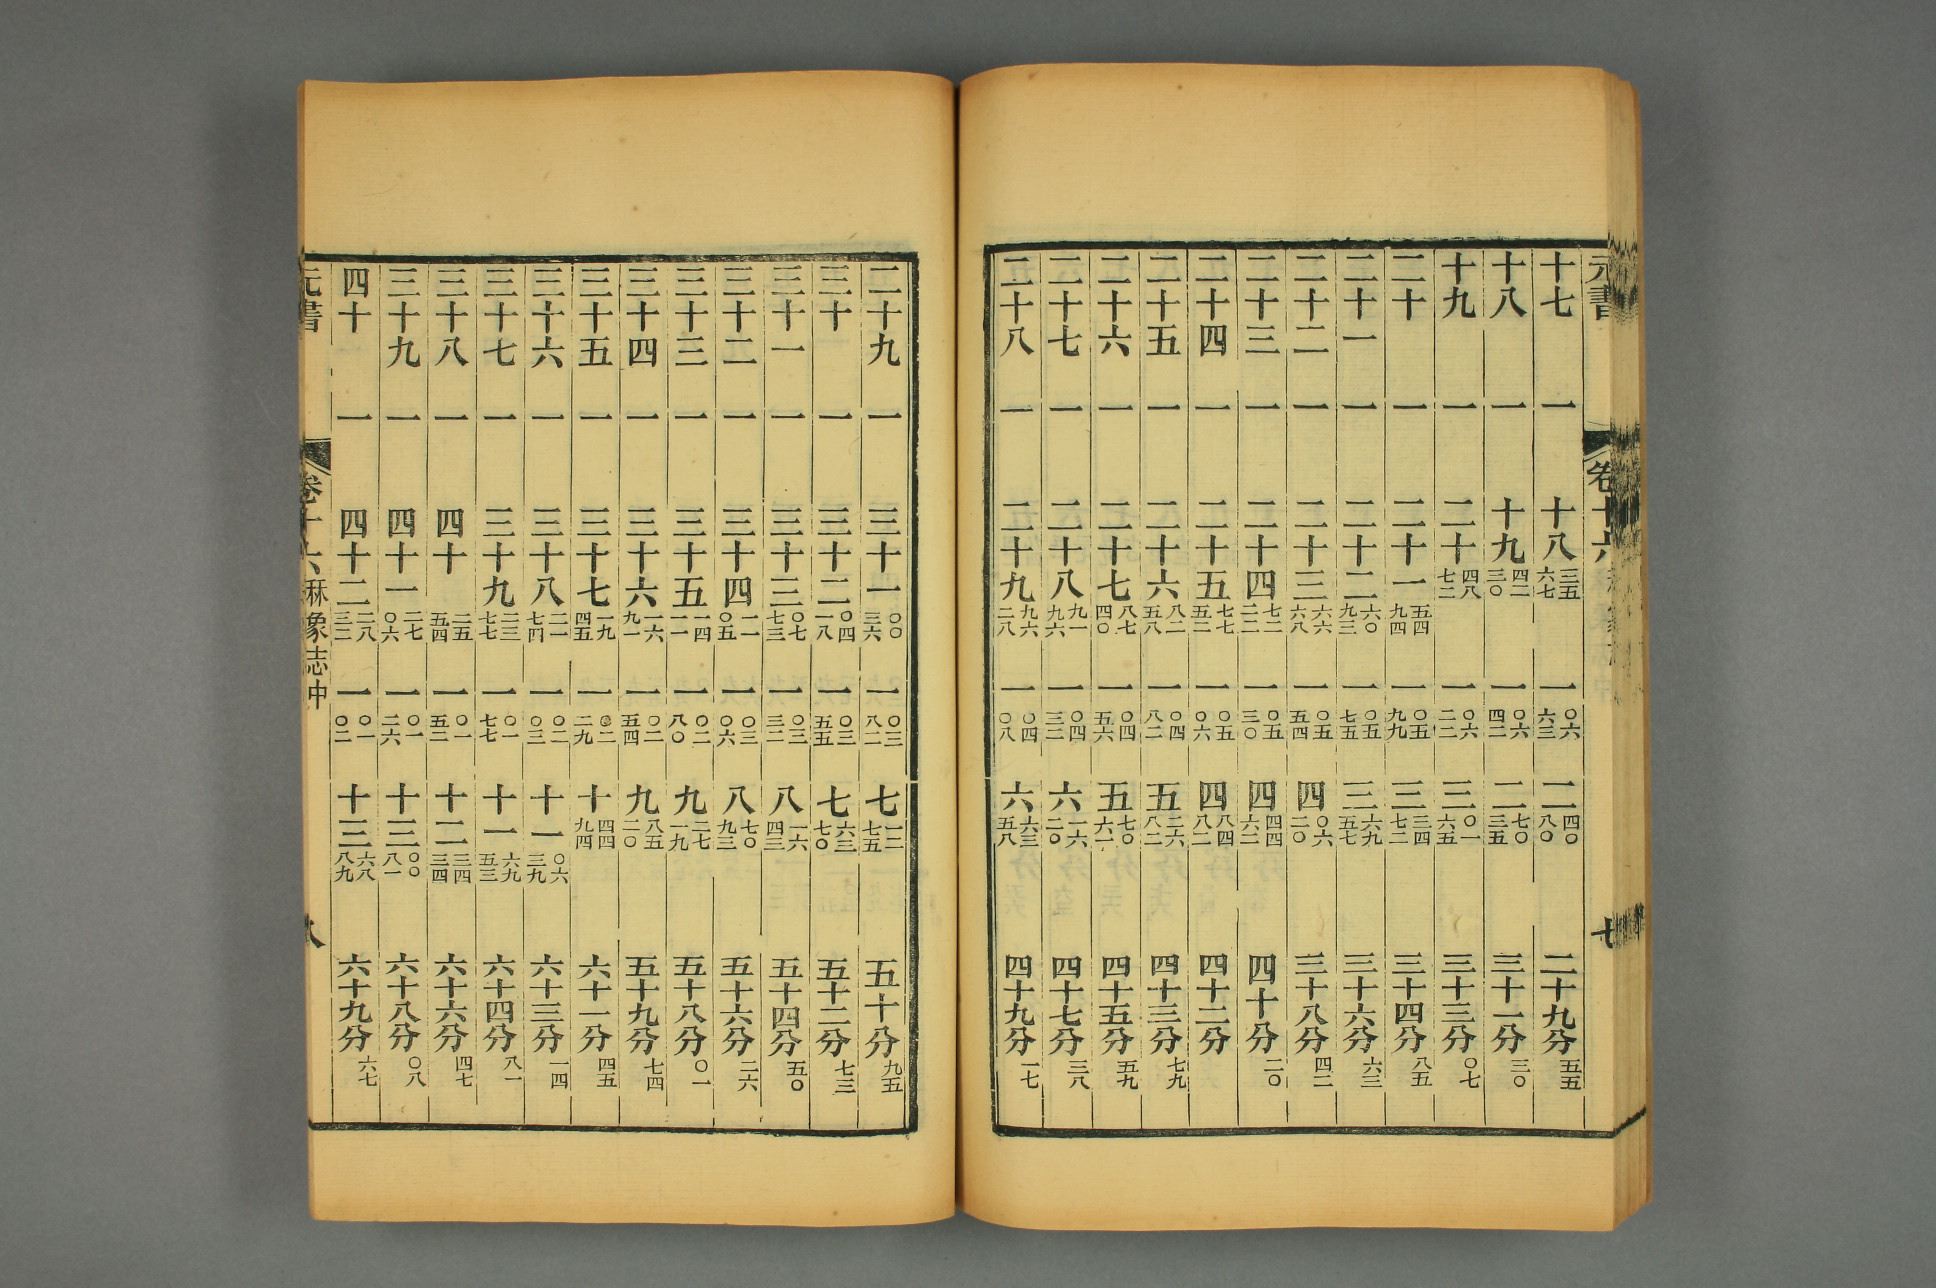 元書 卷十六 七
十七 一 十八 三五六七 一 〇六六三 二 四〇八〇 二十九分 五五
十八 一 十九 四二三〇 一 〇六四二 二 七〇三五 三十一分 三〇
十九 一 二十 四八七二 一 〇六二二 三 〇一六五 三十三分 〇七
二十 一 二十一 五四九四 一 〇五九九 三 三四七二 三十四分 八五
二十一 一 二十二 六〇九三 一 〇五七五 三 六九五七 三十六分 六三
二十二 一 二十三 六六六八 一 〇五五四 四 〇六二〇 三十八分 四二
二十三 一 二十四 七二二二 一 〇五三〇 四 四四六二 四十分 二〇
二十四 一 二十五 七七五二 一 〇五〇六 四 八四八二 四十二分
二十五 一 二十六 八二五八 一 〇四八二 五 二六八二 四十三分 七九
二十六 一 二十七 八七四〇 一 〇四五六 五 七〇六一 四十五分 五九
二十七 一 二十八 九一九六 一 〇四三二 六 一六二〇 四十七分 三八
二十八 一 二十九 九六二八 一 〇四〇八 六 六三五八 四十九分 一七
二十九 一 三十一 〇〇三六 一 〇三八二 七 一二七五 五十分 九五
三十 一 三十二 〇四一八 一 〇三五五 七 六三七〇 五十二分 七三
三十一 一 三十三 〇七七三 一 〇三三二 八 一六四三 五十四分 五〇
三十二 一 三十四 一一〇五 一 〇三〇六 八 七〇九三 五十六分 二六
三十三 一 三十五 一四一一 一 〇二八〇 九 二七一九 五十八分 〇一
三十四 一 三十六 一六九一 一 〇二五四 九 八五二〇 五十九分 七四
三十五 一 三十七 一九四五 一 〇二二九 十 四四九四 六十一分 四五
三十六 一 三十八 二一七四 一 〇二〇三 十一 〇六三九 六十三分 一四
三十七 一 三十九 二三七七 一 〇一七七 十一 六九五三 六十四分 八一
三十八 一 四十 二五五四 一 〇一五二 十二 三四三四 六十六分 四七
三十九 一 四十一 二七〇六 一 〇一二六 十三 〇〇八一 六十八分 〇八
四十 一 四十二 二八三二 一 〇一〇二 十三 六八八九 六十九分 六七
元書 卷十六 厤像志中 八